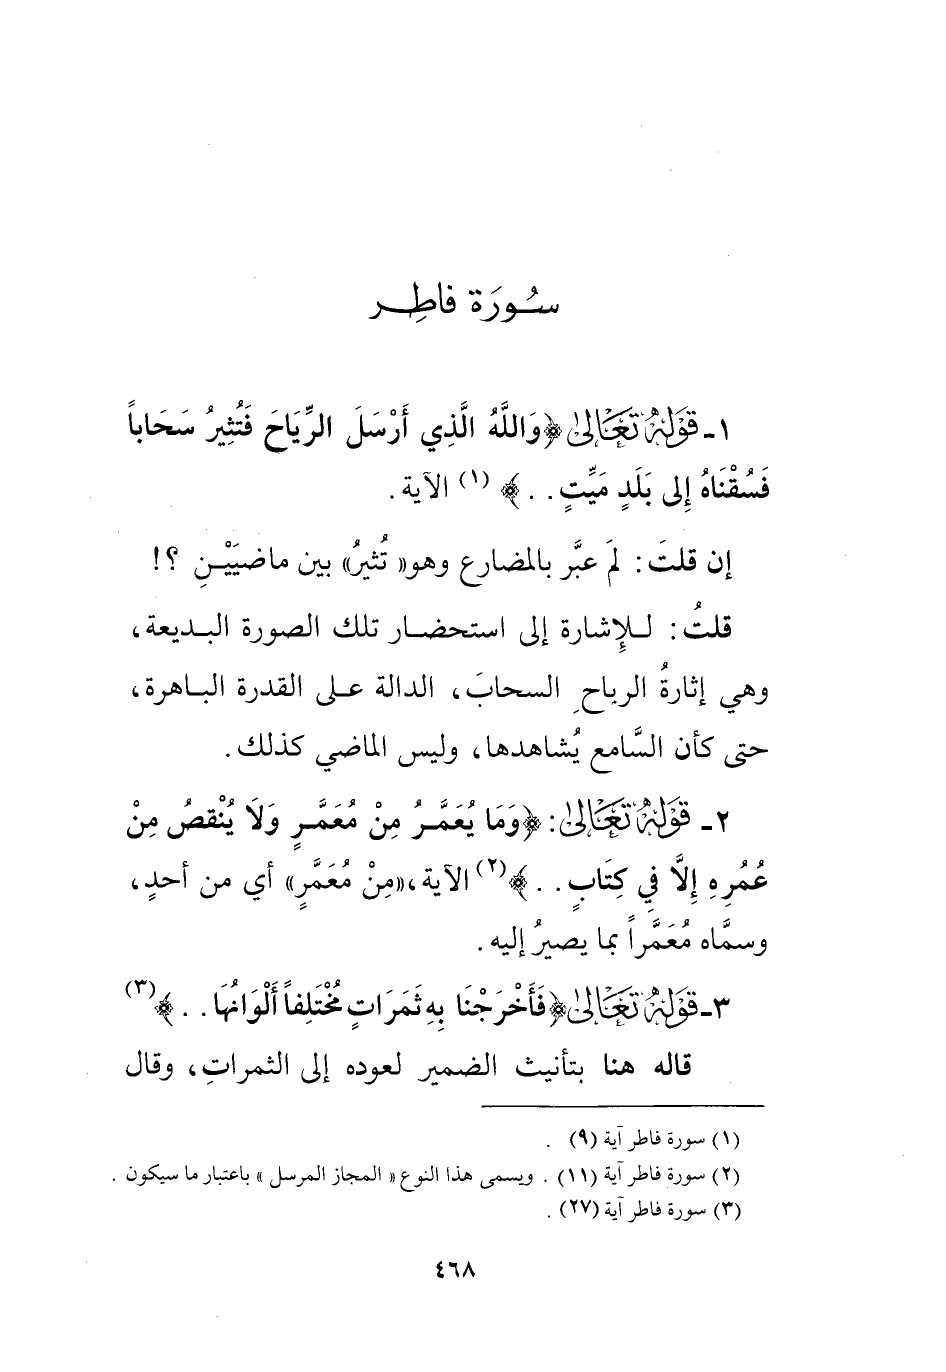 سُورَة فاطِر
١ـ قَوْلهُ تَعَالىٰ ﴿وَاللَّهُ الَّذِي أَرْسَلَ الرِّيَاحَ فَتُثِيرُ سَحَاباً
فَسُقْنَاهُ إِلى بَلَدٍ مَيِّتٍ . . ﴾ (١) الآية .
إن قلتَ : لمَ عبَّر بالمضارع وهو« تُثيرُ» بين ماضيَيْنِ ؟!
قلتُ : للإِشارة إلى استحضار تلك الصورة البديعة،
وهي إثارةُ الرياحِ السحابَ، الدالة على القدرة الباهرة،
حتى كأن السَّامع يُشاهدها، وليس الماضي كذلك .
٢ـ قَوْلهُ تَعَالىٰ: ﴿وَمَا يُعَمَّرُ مِنْ مُعَمَّرٍ وَلَا يُنْقصُ مِنْ
عُمُرِهِ إِلَّا فِي كِتَابٍ . . ﴾(٢) الآية ،«مِنْ مُعَمَّرٍ» أي من أحدٍ،
وسمَّاه مُعَمَّراً بما يصيرُ إليه .
٣ـ قَوْلهُ تَعَالىٰ﴿فَأَخْرَجْنَا بِهِ ثَمَرَاتٍ مُخْتَلِفاً أَلْوَانُهَا . . ﴾(٣)
قاله هنا بتأنيث الضمير لعوده إلى الثمراتِ، وقال
(١) سورة فاطر آية (٩) .
(٢) سورة فاطر آية (١١) . ويسمى هذا النوع « المجاز المرسل » باعتبار ما سيكون .
(٣) سورة فاطر آية (٢٧) .
٤٦٨